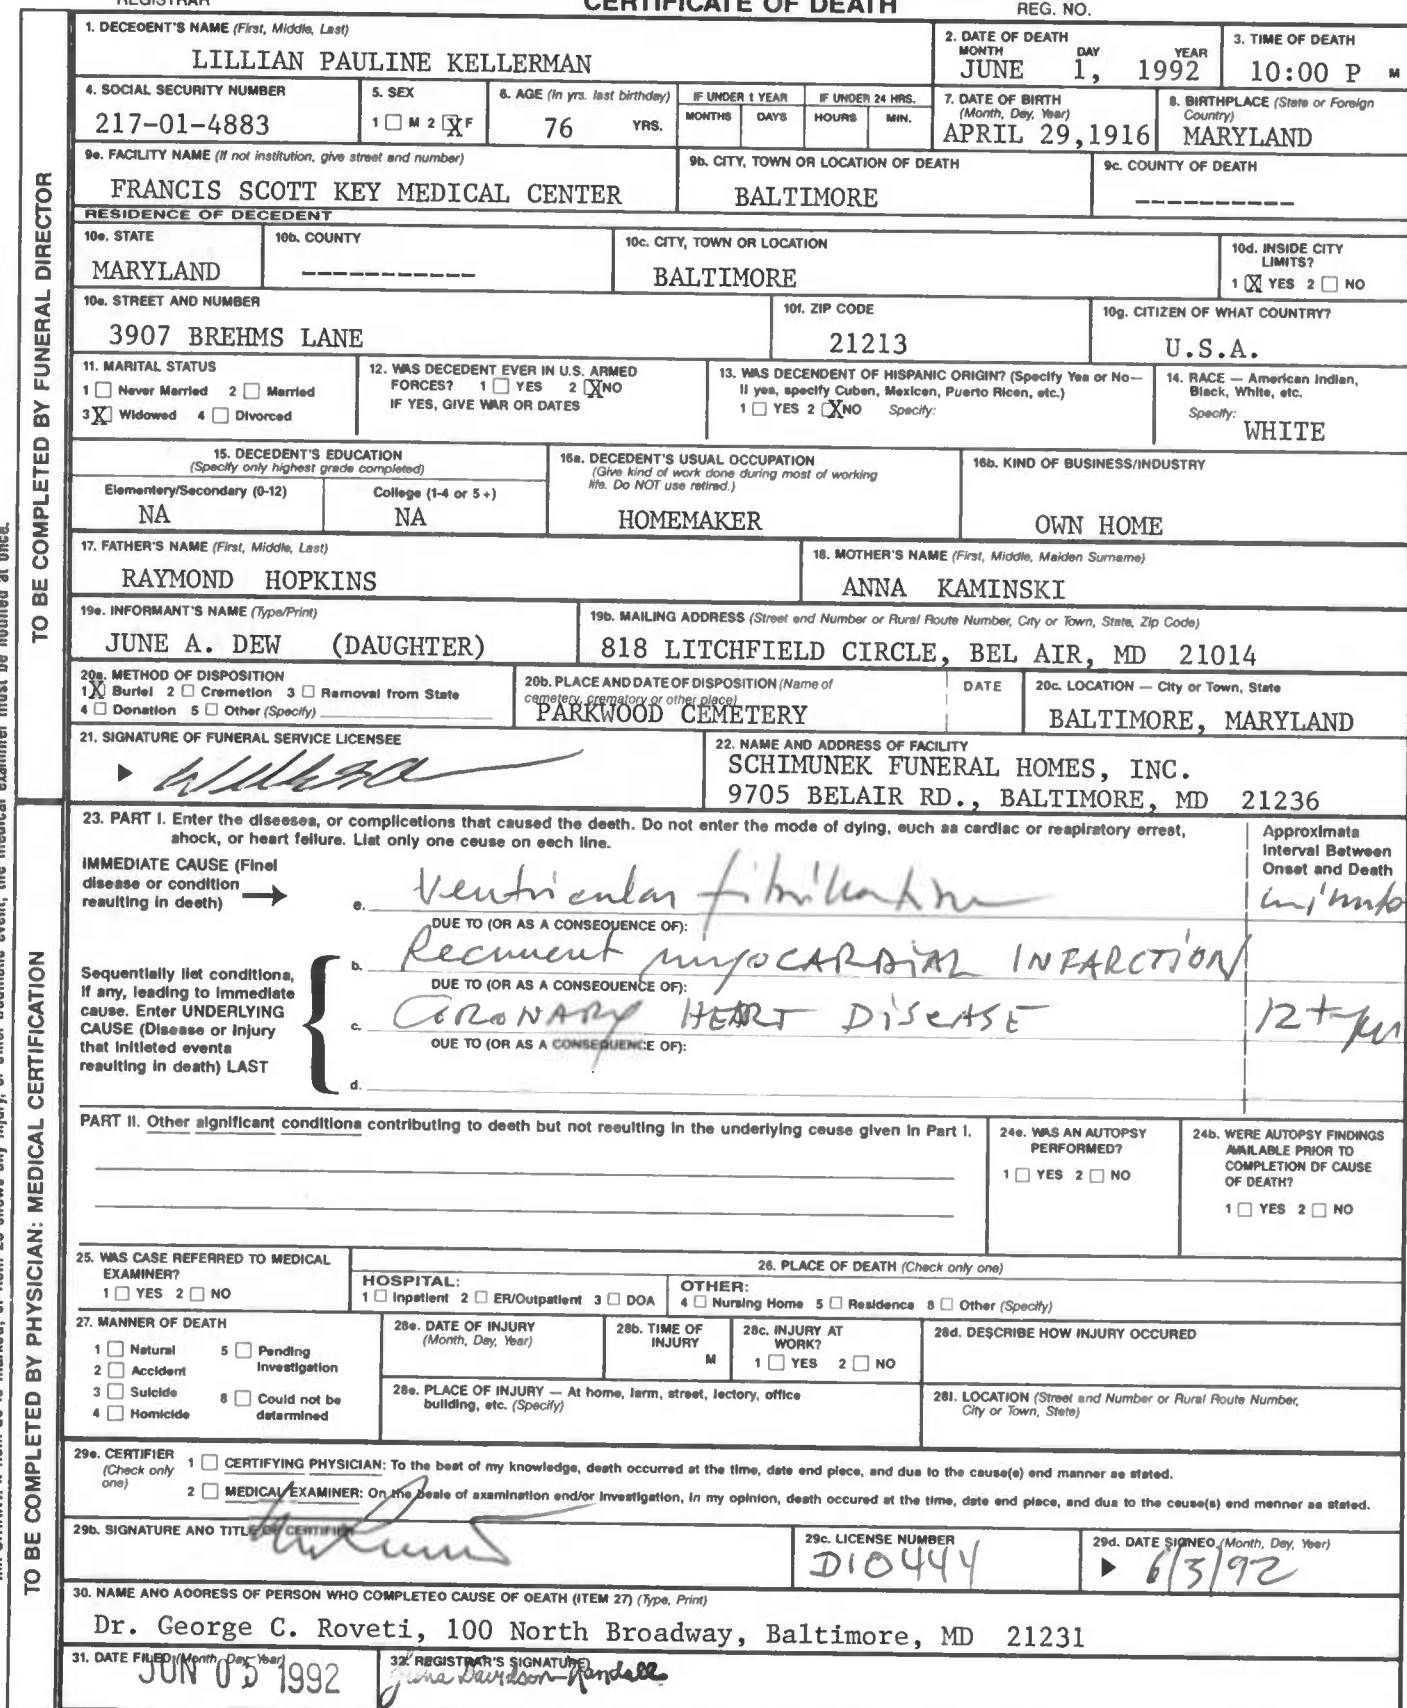 REGISTRAR CERTIFICATE OF DEATH REG. NO.
TO BE COMPLETED BY FUNERAL DIRECTOR
1. DECEDENT'S NAME (First, Middle, Last)
LILLIAN PAULINE KELLERMAN
2. DATE OF DEATH
MONTH DAY YEAR
JUNE 1, 1992
3. TIME OF DEATH
10:00 P M
4. SOCIAL SECURITY NUMBER
217-01-4883
5. SEX
1 ☐ M 2 ☒ F
6. AGE (In yrs. last birthday)
76 YRS.
IF UNDER 1 YEAR
MONTHS DAYS
IF UNDER 24 HRS.
HOURS MIN.
7. DATE OF BIRTH
(Month, Day, Year)
APRIL 29,1916
8. BIRTHPLACE (State or Foreign
Country)
MARYLAND
9a. FACILITY NAME (If not institution, give street and number)
FRANCIS SCOTT KEY MEDICAL CENTER
9b. CITY, TOWN OR LOCATION OF DEATH
BALTIMORE
9c. COUNTY OF DEATH
----------
RESIDENCE OF DECEDENT
10a. STATE
MARYLAND
10b. COUNTY
-----------
10c. CITY, TOWN OR LOCATION
BALTIMORE
10d. INSIDE CITY
LIMITS?
1 ☒ YES 2 ☐ NO
10e. STREET AND NUMBER
3907 BREHMS LANE
10f. ZIP CODE
21213
10g. CITIZEN OF WHAT COUNTRY?
U.S.A.
11. MARITAL STATUS
1 ☐ Never Married 2 ☐ Married
3 ☒ Widowed 4 ☐ Divorced
12. WAS DECEDENT EVER IN U.S. ARMED
FORCES? 1 ☐ YES 2 ☒ NO
IF YES, GIVE WAR OR DATES
13. WAS DECENDENT OF HISPANIC ORIGIN? (Specify Yes or No—
If yes, specify Cuban, Mexican, Puerto Rican, etc.)
1 ☐ YES 2 ☒ NO Specify:
14. RACE — American Indian,
Black, White, etc.
Specify:
WHITE
15. DECEDENT'S EDUCATION
(Specify only highest grade completed)
Elementary/Secondary (0-12)
NA
College (1-4 or 5+)
NA
16a. DECEDENT'S USUAL OCCUPATION
(Give kind of work done during most of working
life. Do NOT use retired.)
HOMEMAKER
16b. KIND OF BUSINESS/INDUSTRY
OWN HOME
17. FATHER'S NAME (First, Middle, Last)
RAYMOND HOPKINS
18. MOTHER'S NAME (First, Middle, Maiden Surname)
ANNA KAMINSKI
19a. INFORMANT'S NAME (Type/Print)
JUNE A. DEW (DAUGHTER)
19b. MAILING ADDRESS (Street and Number or Rural Route Number, City or Town, State, Zip Code)
818 LITCHFIELD CIRCLE, BEL AIR, MD 21014
20a. METHOD OF DISPOSITION
1 ☒ Burial 2 ☐ Cremation 3 ☐ Removal from State
4 ☐ Donation 5 ☐ Other (Specify)
20b. PLACE AND DATE OF DISPOSITION (Name of
cemetery, crematory or other place)
PARKWOOD CEMETERY
DATE
20c. LOCATION — City or Town, State
BALTIMORE, MARYLAND
21. SIGNATURE OF FUNERAL SERVICE LICENSEE
22. NAME AND ADDRESS OF FACILITY
SCHIMUNEK FUNERAL HOMES, INC.
9705 BELAIR RD., BALTIMORE, MD 21236
TO BE COMPLETED BY PHYSICIAN: MEDICAL CERTIFICATION
23. PART I. Enter the diseases, or complications that caused the death. Do not enter the mode of dying, such as cardiac or respiratory arrest,
shock, or heart failure. List only one cause on each line.
Approximate
Interval Between
Onset and Death
IMMEDIATE CAUSE (Final
disease or condition
resulting in death)
a. Ventricular fibrillation
minutes
DUE TO (OR AS A CONSEQUENCE OF):
b. Recurrent MYOCARDIAL INFARCTION
DUE TO (OR AS A CONSEQUENCE OF):
c. CORONARY HEART DISEASE
12+ yrs
DUE TO (OR AS A CONSEQUENCE OF):
d.
Sequentially list conditions,
if any, leading to immediate
cause. Enter UNDERLYING
CAUSE (Disease or injury
that initiated events
resulting in death) LAST
PART II. Other significant conditions contributing to death but not resulting in the underlying cause given in Part I.
24a. WAS AN AUTOPSY
PERFORMED?
1 ☐ YES 2 ☐ NO
24b. WERE AUTOPSY FINDINGS
AVAILABLE PRIOR TO
COMPLETION OF CAUSE
OF DEATH?
1 ☐ YES 2 ☐ NO
25. WAS CASE REFERRED TO MEDICAL
EXAMINER?
1 ☐ YES 2 ☐ NO
26. PLACE OF DEATH (Check only one)
HOSPITAL:
1 ☐ Inpatient 2 ☐ ER/Outpatient 3 ☐ DOA
OTHER:
4 ☐ Nursing Home 5 ☐ Residence 8 ☐ Other (Specify)
27. MANNER OF DEATH
1 ☐ Natural 5 ☐ Pending
2 ☐ Accident Investigation
3 ☐ Suicide 8 ☐ Could not be
4 ☐ Homicide determined
28a. DATE OF INJURY
(Month, Day, Year)
28b. TIME OF
INJURY
M
28c. INJURY AT
WORK?
1 ☐ YES 2 ☐ NO
28d. DESCRIBE HOW INJURY OCCURED
28e. PLACE OF INJURY — At home, farm, street, factory, office
building, etc. (Specify)
28f. LOCATION (Street and Number or Rural Route Number,
City or Town, State)
29a. CERTIFIER
(Check only
one)
1 ☐ CERTIFYING PHYSICIAN: To the best of my knowledge, death occurred at the time, date and place, and due to the cause(s) and manner as stated.
2 ☐ MEDICAL EXAMINER: On the basis of examination and/or investigation, in my opinion, death occured at the time, date and place, and due to the cause(s) and manner as stated.
29b. SIGNATURE AND TITLE OF CERTIFIER
29c. LICENSE NUMBER
D10444
29d. DATE SIGNED (Month, Day, Year)
6/3/92
30. NAME AND ADDRESS OF PERSON WHO COMPLETED CAUSE OF DEATH (ITEM 27) (Type, Print)
Dr. George C. Roveti, 100 North Broadway, Baltimore, MD 21231
31. DATE FILED (Month, Day, Year)
JUN 05 1992
32. REGISTRAR'S SIGNATURE
Julia Davidson-Randall